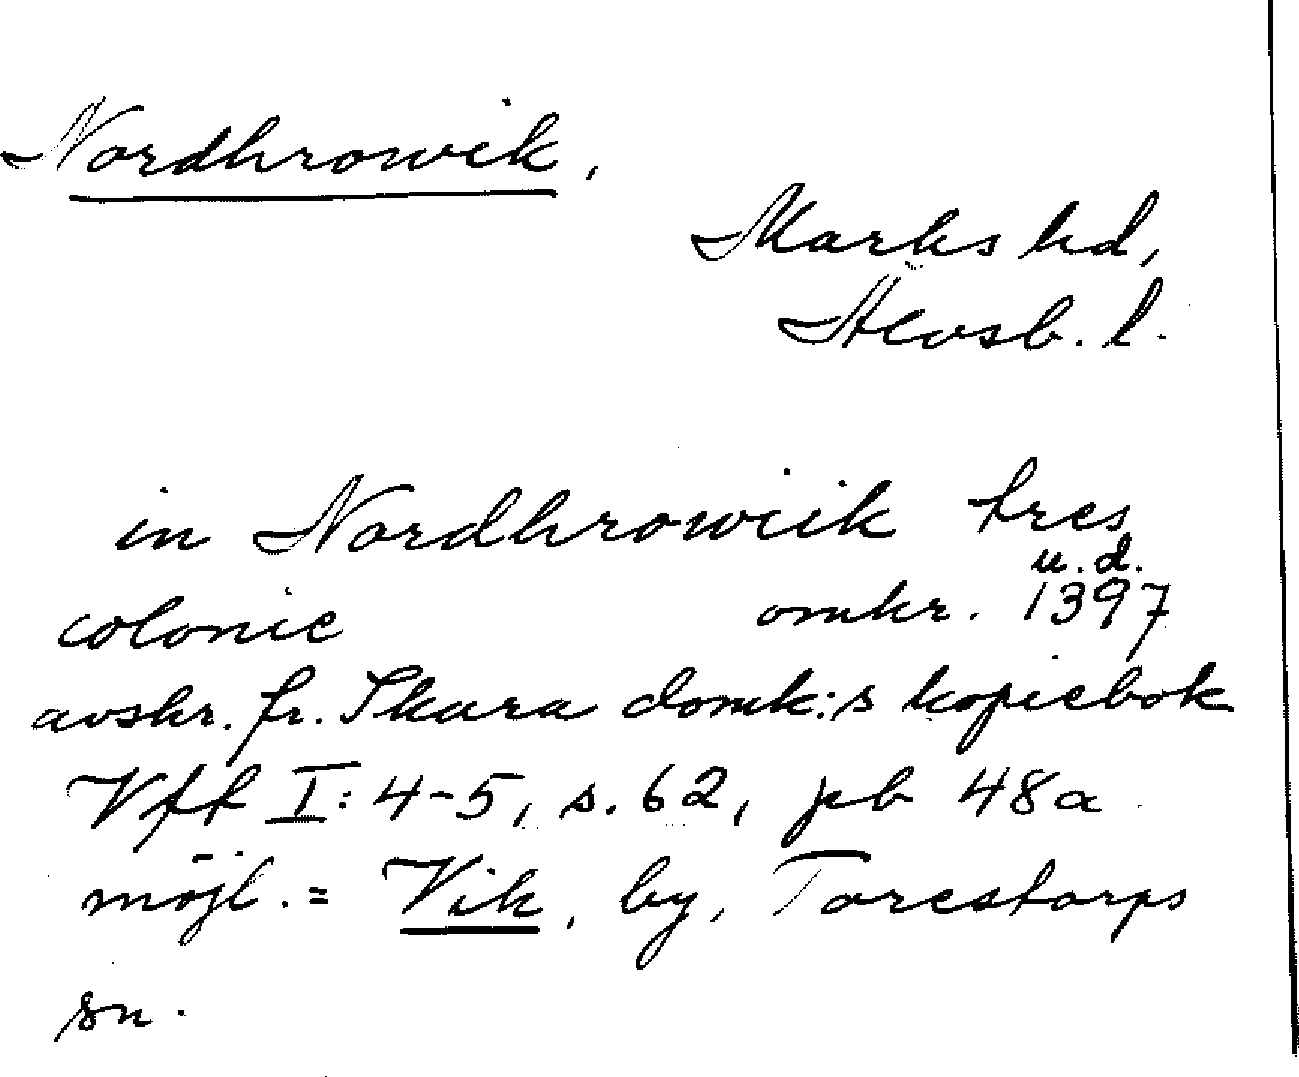 Nordhrowik,
Marks hd,
Älvsb. l.
in Nordhrowiik tres
u. d.
colonie omkr. 1397
avskr. fr. Skara domk:s kopiebok
Vff I: 4-5, s. 62, pb 48a
möjl. = Vik, by, Torestorps
sn.